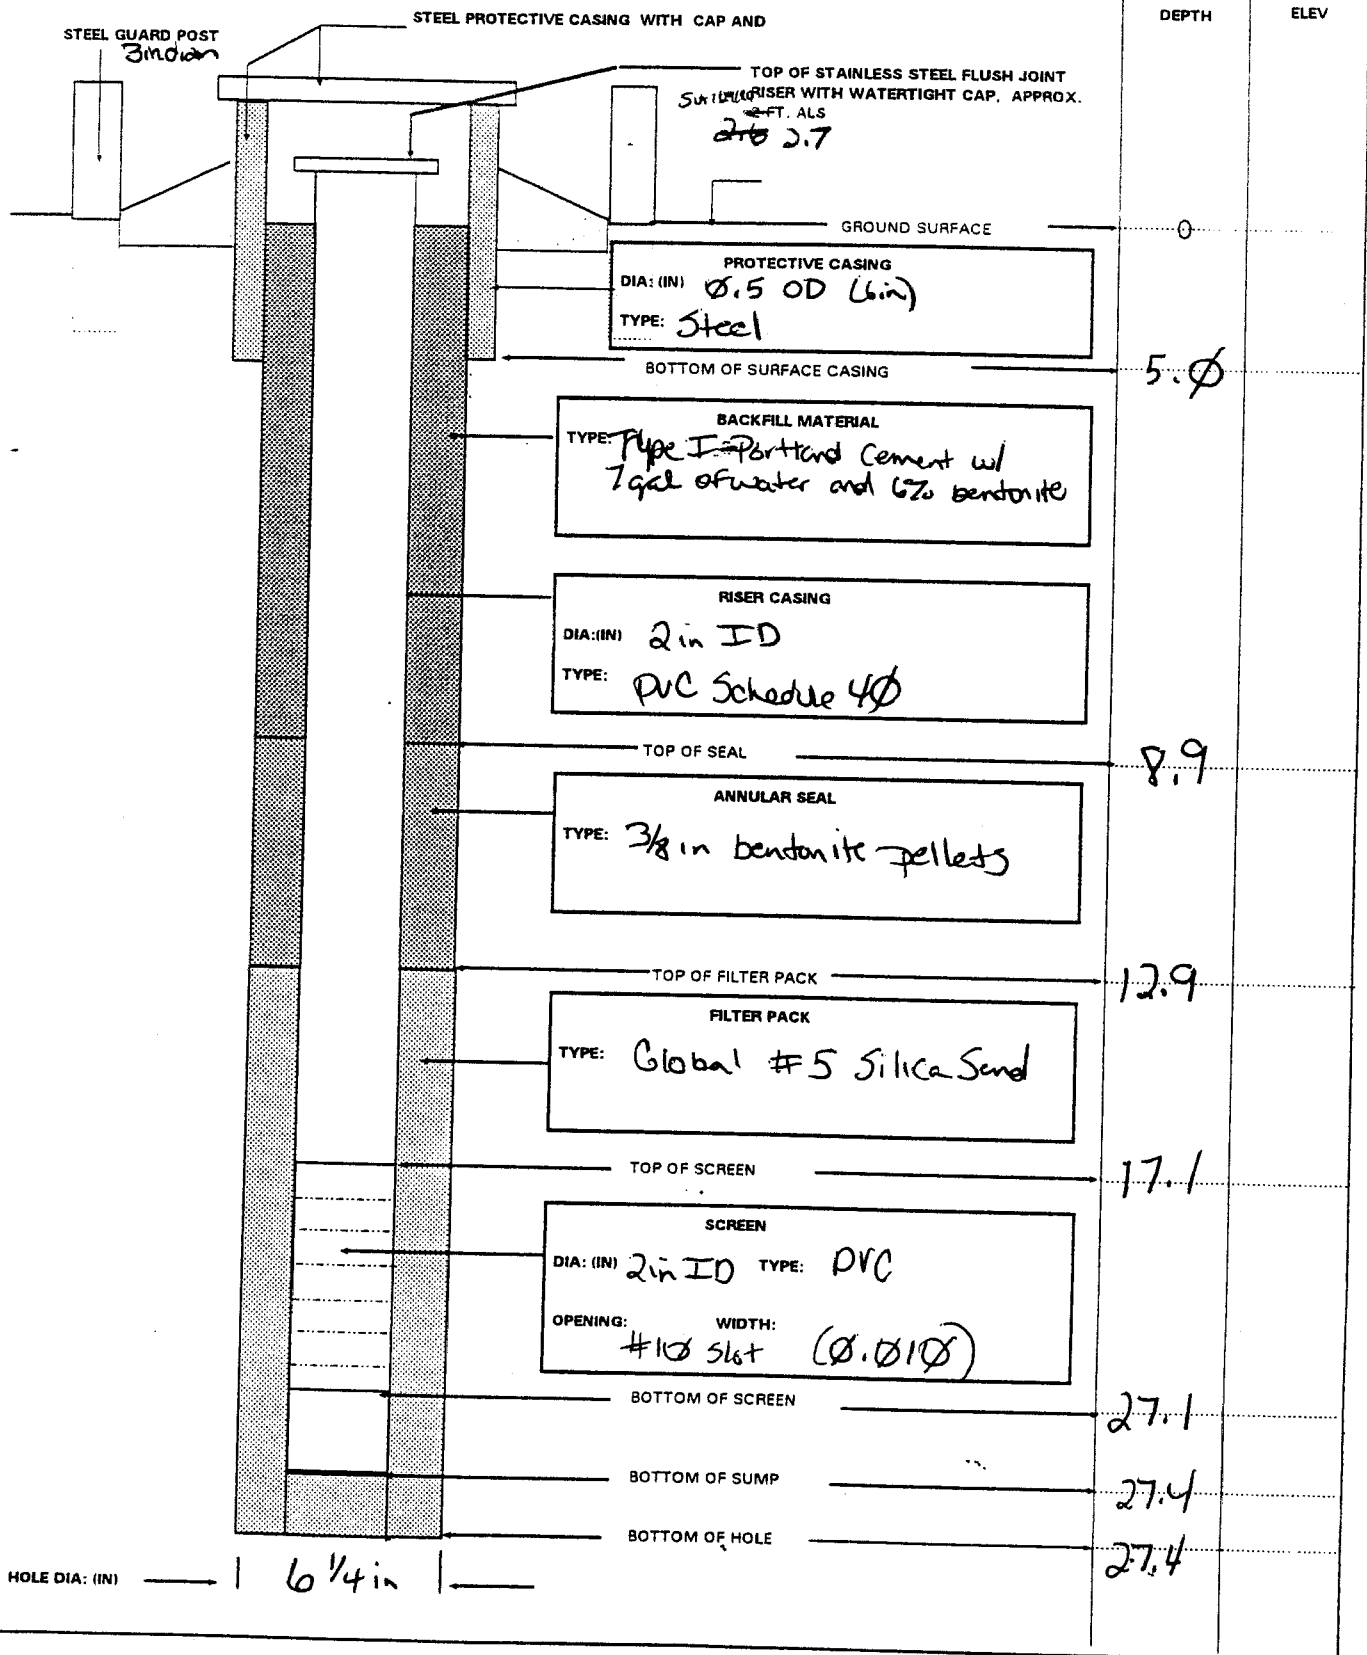 DEPTH ELEV
STEEL PROTECTIVE CASING WITH CAP AND
STEEL GUARD POST
TOP OF STAINLESS STEEL FLUSH JOINT
RISER WITH WATERTIGHT CAP, APPROX.
2 FT. ALS
2.6 2.7
GROUND SURFACE 0
PROTECTIVE CASING
DIA: (IN) Ø.5 OD (6in)
TYPE: Steel
BOTTOM OF SURFACE CASING 5.Ø
BACKFILL MATERIAL
TYPE: Type I Portland Cement w/
7 gal of water and 6% bentonite
RISER CASING
DIA:(IN) 2 in ID
TYPE: PVC Schedule 4Ø
TOP OF SEAL 8.9
ANNULAR SEAL
TYPE: 3/8 in bentonite pellets
TOP OF FILTER PACK 12.9
FILTER PACK
TYPE: Global #5 Silica Sand
TOP OF SCREEN 17.1
SCREEN
DIA: (IN) 2in ID TYPE: PVC
OPENING: WIDTH:
#1Ø Slot (Ø.Ø1Ø)
BOTTOM OF SCREEN 27.1
BOTTOM OF SUMP 27.4
BOTTOM OF HOLE 27.4
HOLE DIA: (IN) 6 1/4 in